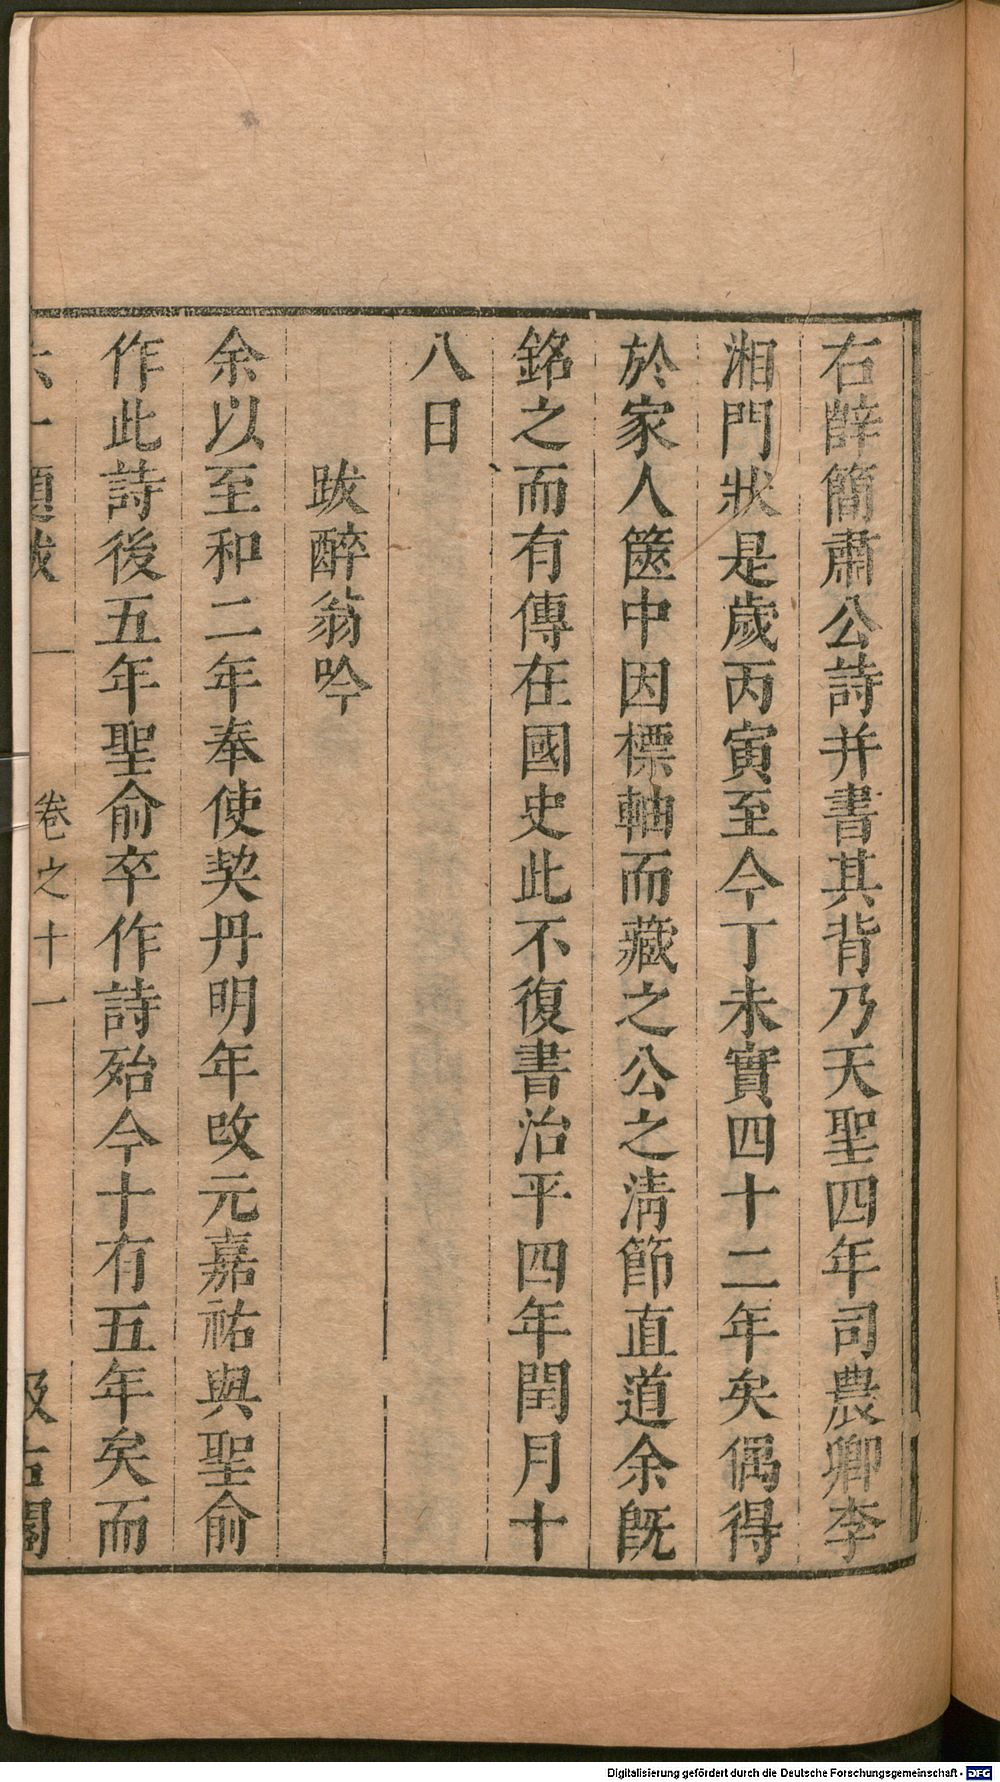 右薛簡肅公詩并書其背乃天聖四年司農卿李
湘門狀是歲丙寅至今丁未實四十二年矣偶得
於家人篋中因標軸而藏之公之淸節直道余旣
銘之而有傳在國史此不復書治平四年閏月十
八日
跋醉翁吟
余以至和二年奉使契丹明年改元嘉祐與聖俞
作此詩後五年聖俞卒作詩殆今十有五年矣而
六一題跋
卷之十一
汲古閣
Digitalisierung gefördert durch die Deutsche Forschungsgemeinschaft - DFG